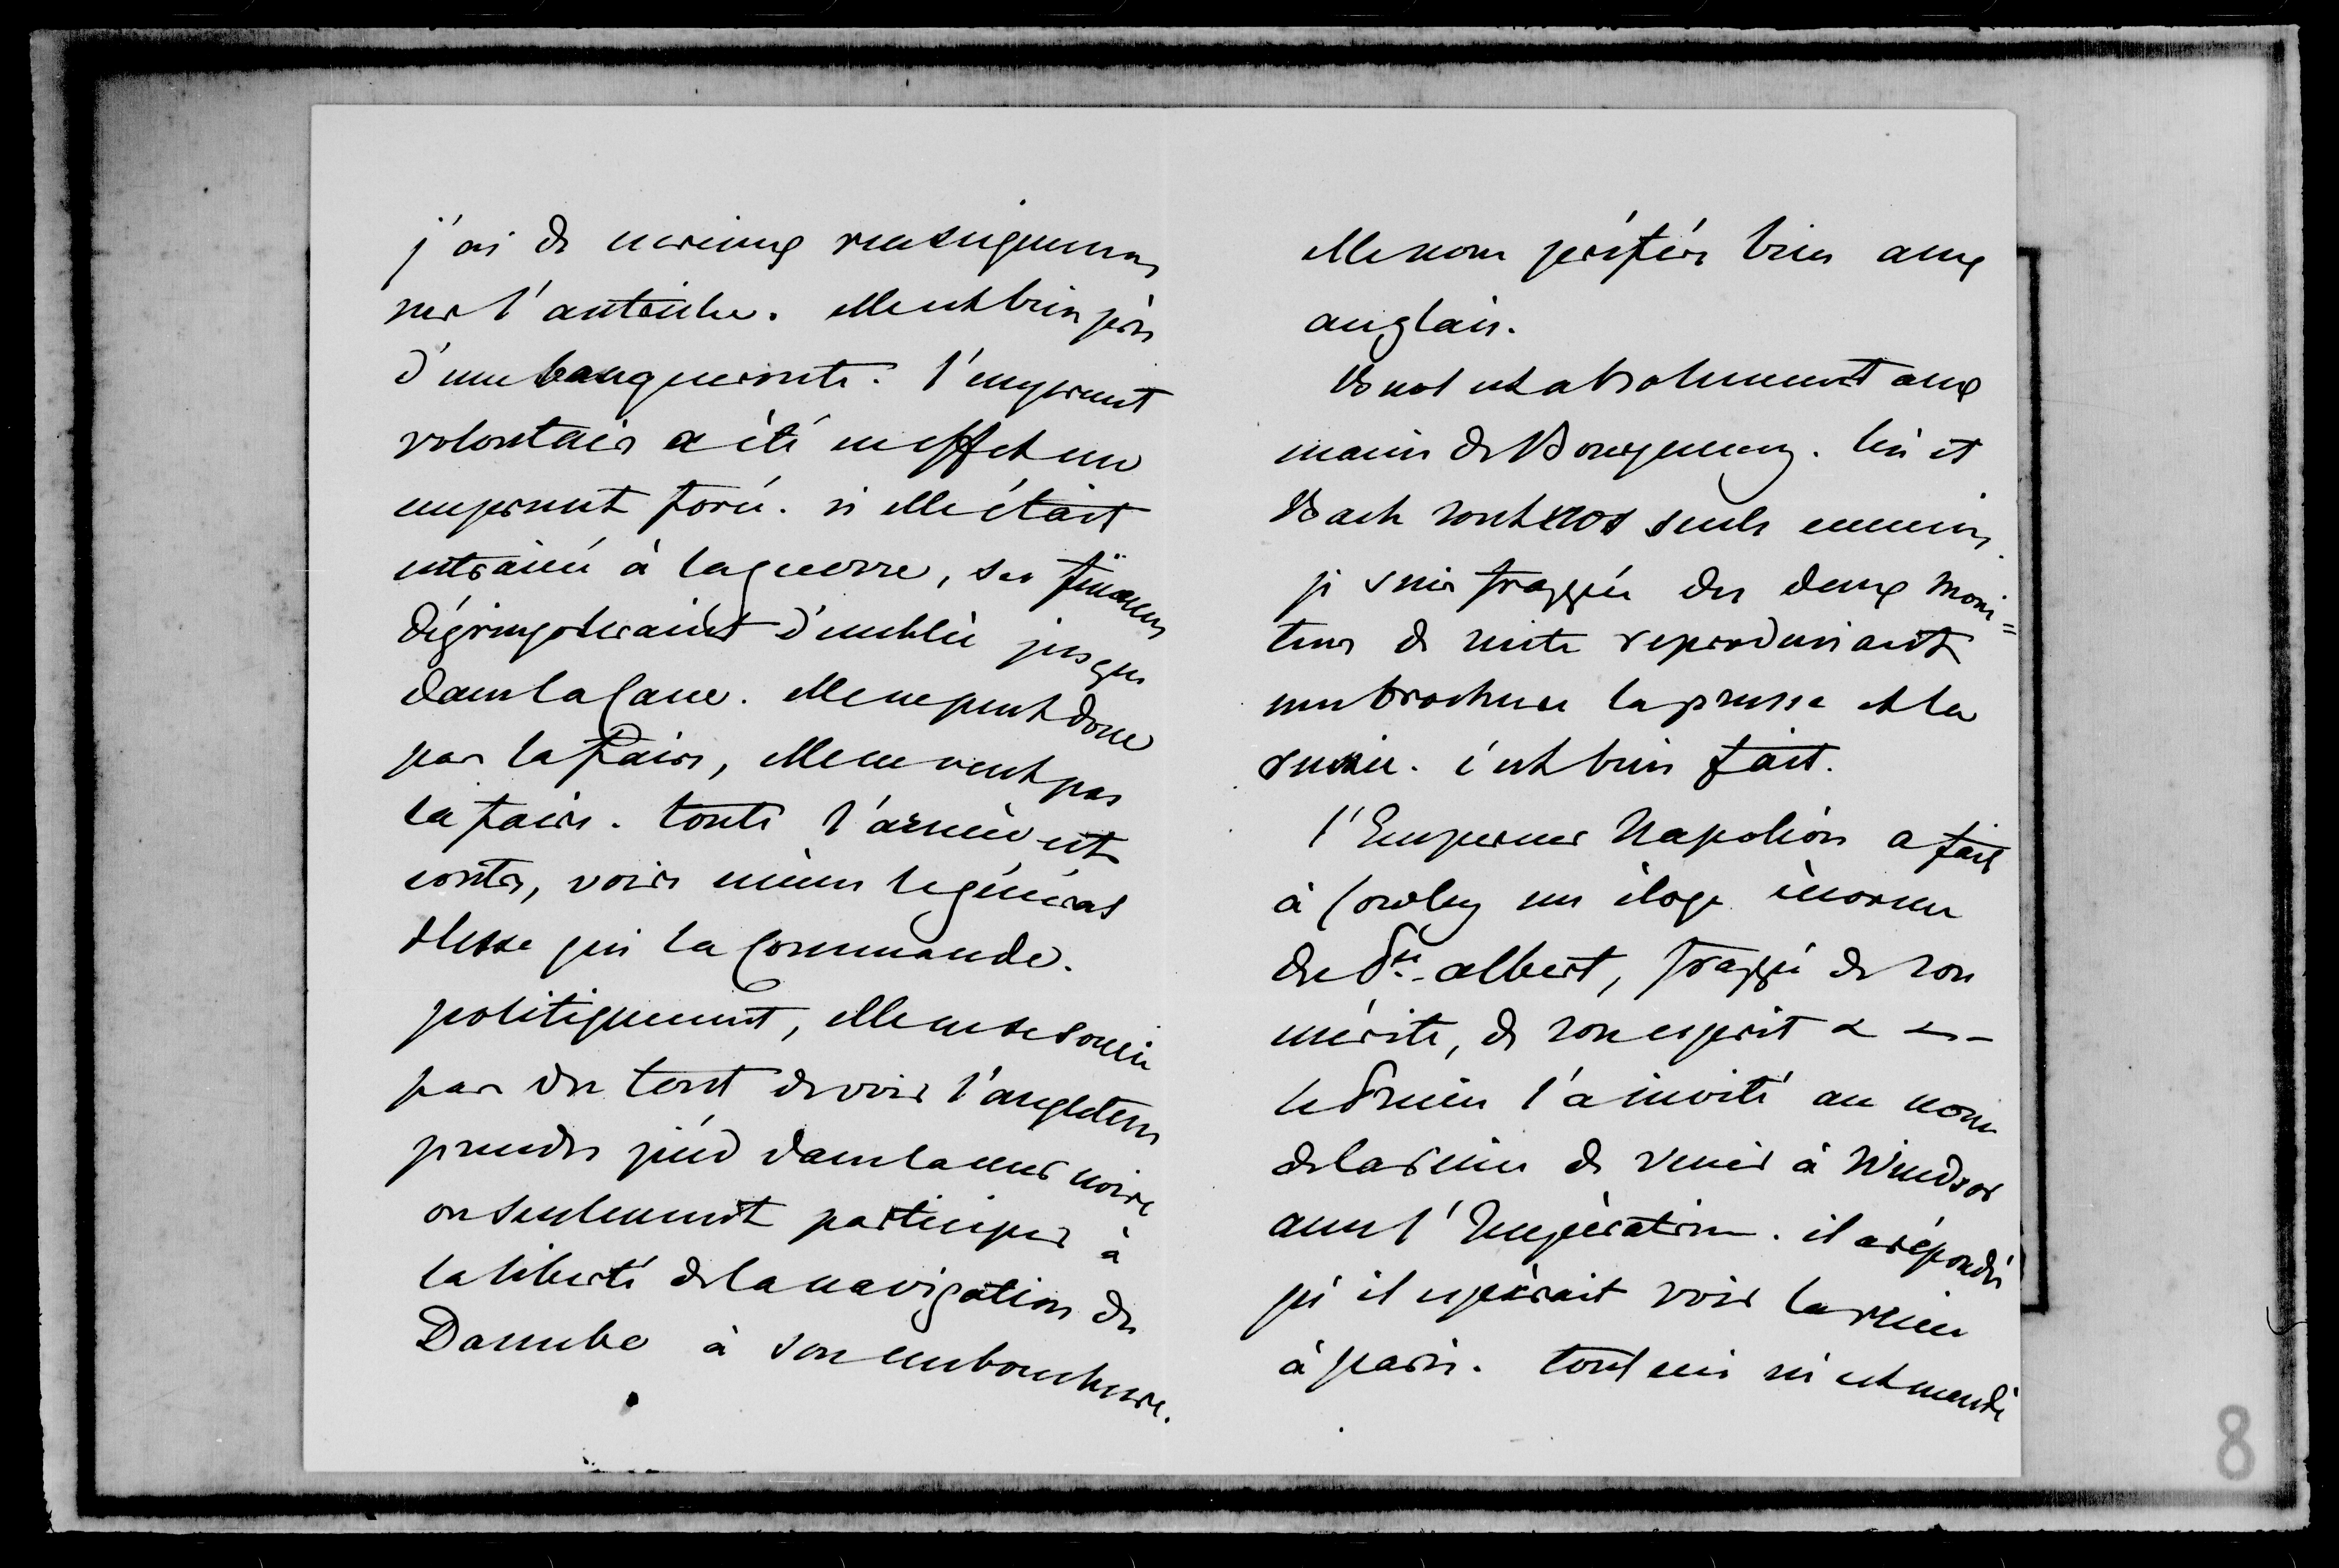 j'ai de curieux renseignemens
sur l'autriche. elle est bien près
d'une banqueroute. l'emprunt
volontaire a été en effet un
emprunt forcé. si elle était
entrainée à la guerre, ses finances
dégringoleraient d'emblée jusque
dans la cave. elle ne peut donc
pas la faire, elle ne veut pas
la faire. toute l'armée est
contre, voire même le général
Hesse qui la commande.
politiquement, elle ne se soucie
pas du tout de voir l'angleterre
prendre pied dans la mer noire
ou seulement participer à
la liberté de la navigation du
Danube à son embouchure.
elle nous préfère bien aux
anglais.
Buol est absolument aux
mains de Bourqueney. lui et
Bach sont nos seuls ennemis.
je suis frappée des deux moni=
teurs de suite reproduisant
une brochure la prusse et la
russie. c'est bien fait.
l'Empereur Napoléon a fait
à Cowley un éloge énorme
du Pce albert, frappé de son
mérite, de son esprit &
le Prince l'a invité au nom
de la reine de venir à Windsor
avec l'Impératrice. il a répondu
qu'il espérait voir la reine
à paris. tout ceci m'est mandé
8